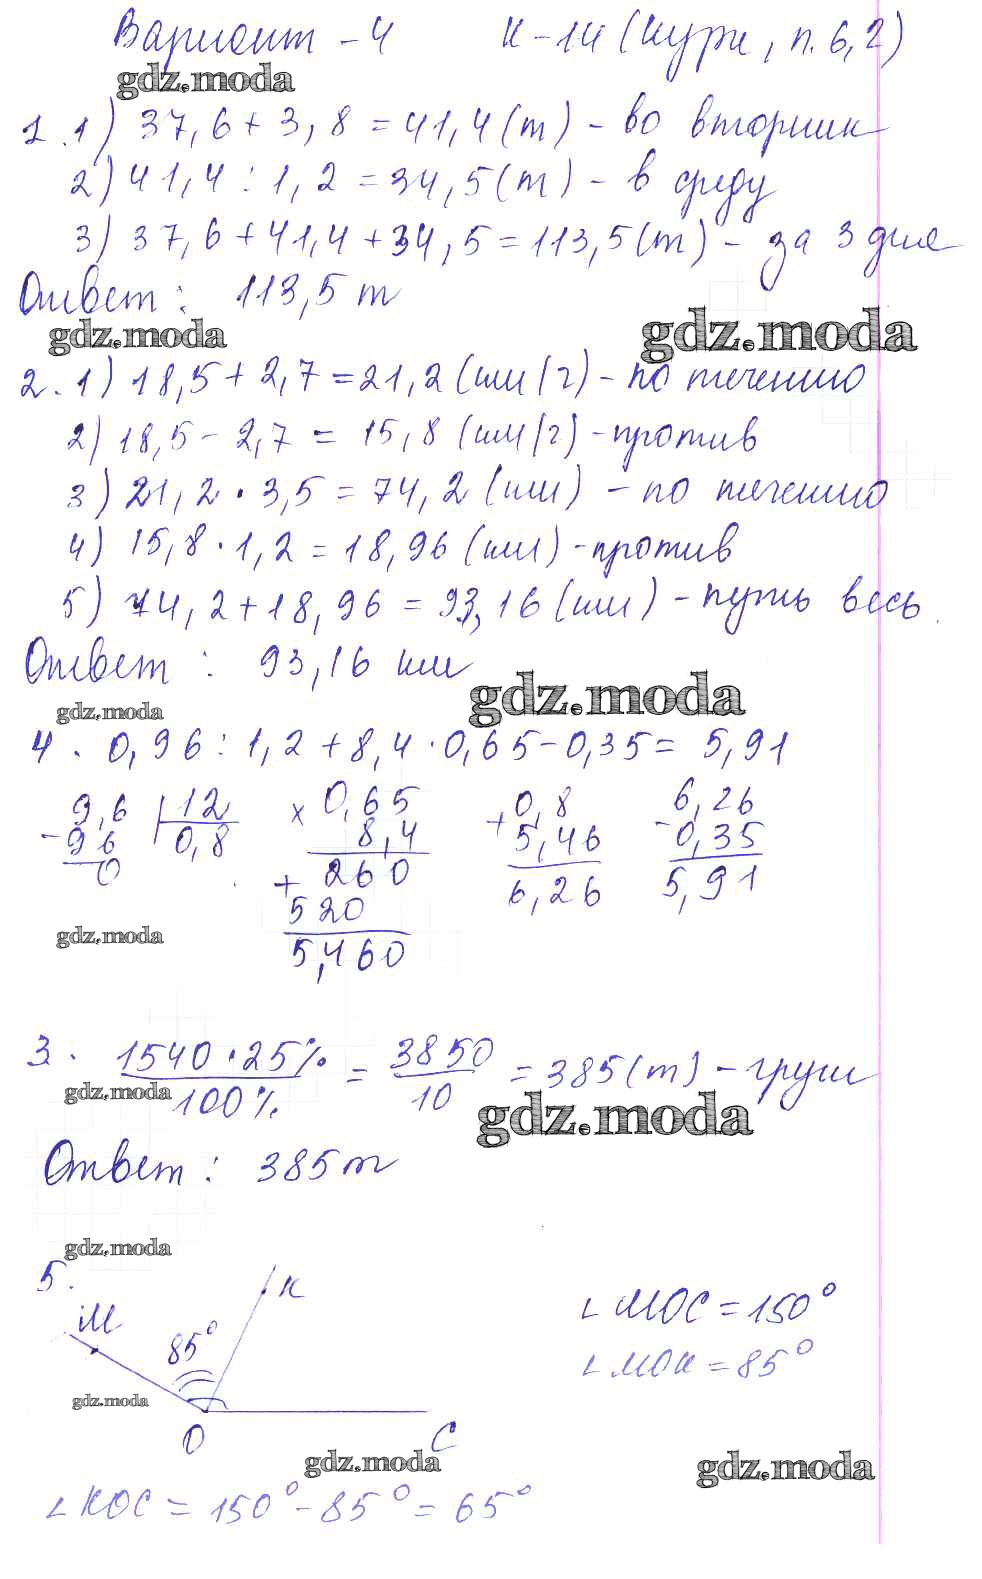 Вариант - 4 К-14 (Кури, п. 6, 2)
gdz.moda
1. 1) 37,6 + 3,8 = 41,4 (т) - во вторник
2) 41,4 : 1,2 = 34,5 (т) - в среду
3) 37,6 + 41,4 + 34,5 = 113,5 (т) - за 3 дня
Ответ: 113,5 т
gdz.moda gdz.moda
2. 1) 18,5 + 2,7 = 21,2 (км/ч) - по течению
2) 18,5 - 2,7 = 15,8 (км/ч) - против
3) 21,2 · 3,5 = 74,2 (км) - по течению
4) 15,8 · 1,2 = 18,96 (км) - против
5) 74,2 + 18,96 = 93,16 (км) - путь весь.
Ответ: 93,16 км
gdz.moda gdz.moda
4. 0,96 : 1,2 + 8,4 · 0,65 - 0,35 = 5,91
9,6 12 × 0,65 + 0,8 6,26
- 96 0,8 8,4 5,46 - 0,35
0 260 6,26 5,91
+ 520
gdz.moda 5,460
3. 1540 · 25% / 100% = 3850 / 10 = 385 (т) - груш
gdz.moda gdz.moda
Ответ: 385 т
gdz.moda
5.
М К
85°
О С
∠ МОС = 150°
∠ МОК = 85°
gdz.moda
gdz.moda gdz.moda
∠ КОС = 150° - 85° = 65°